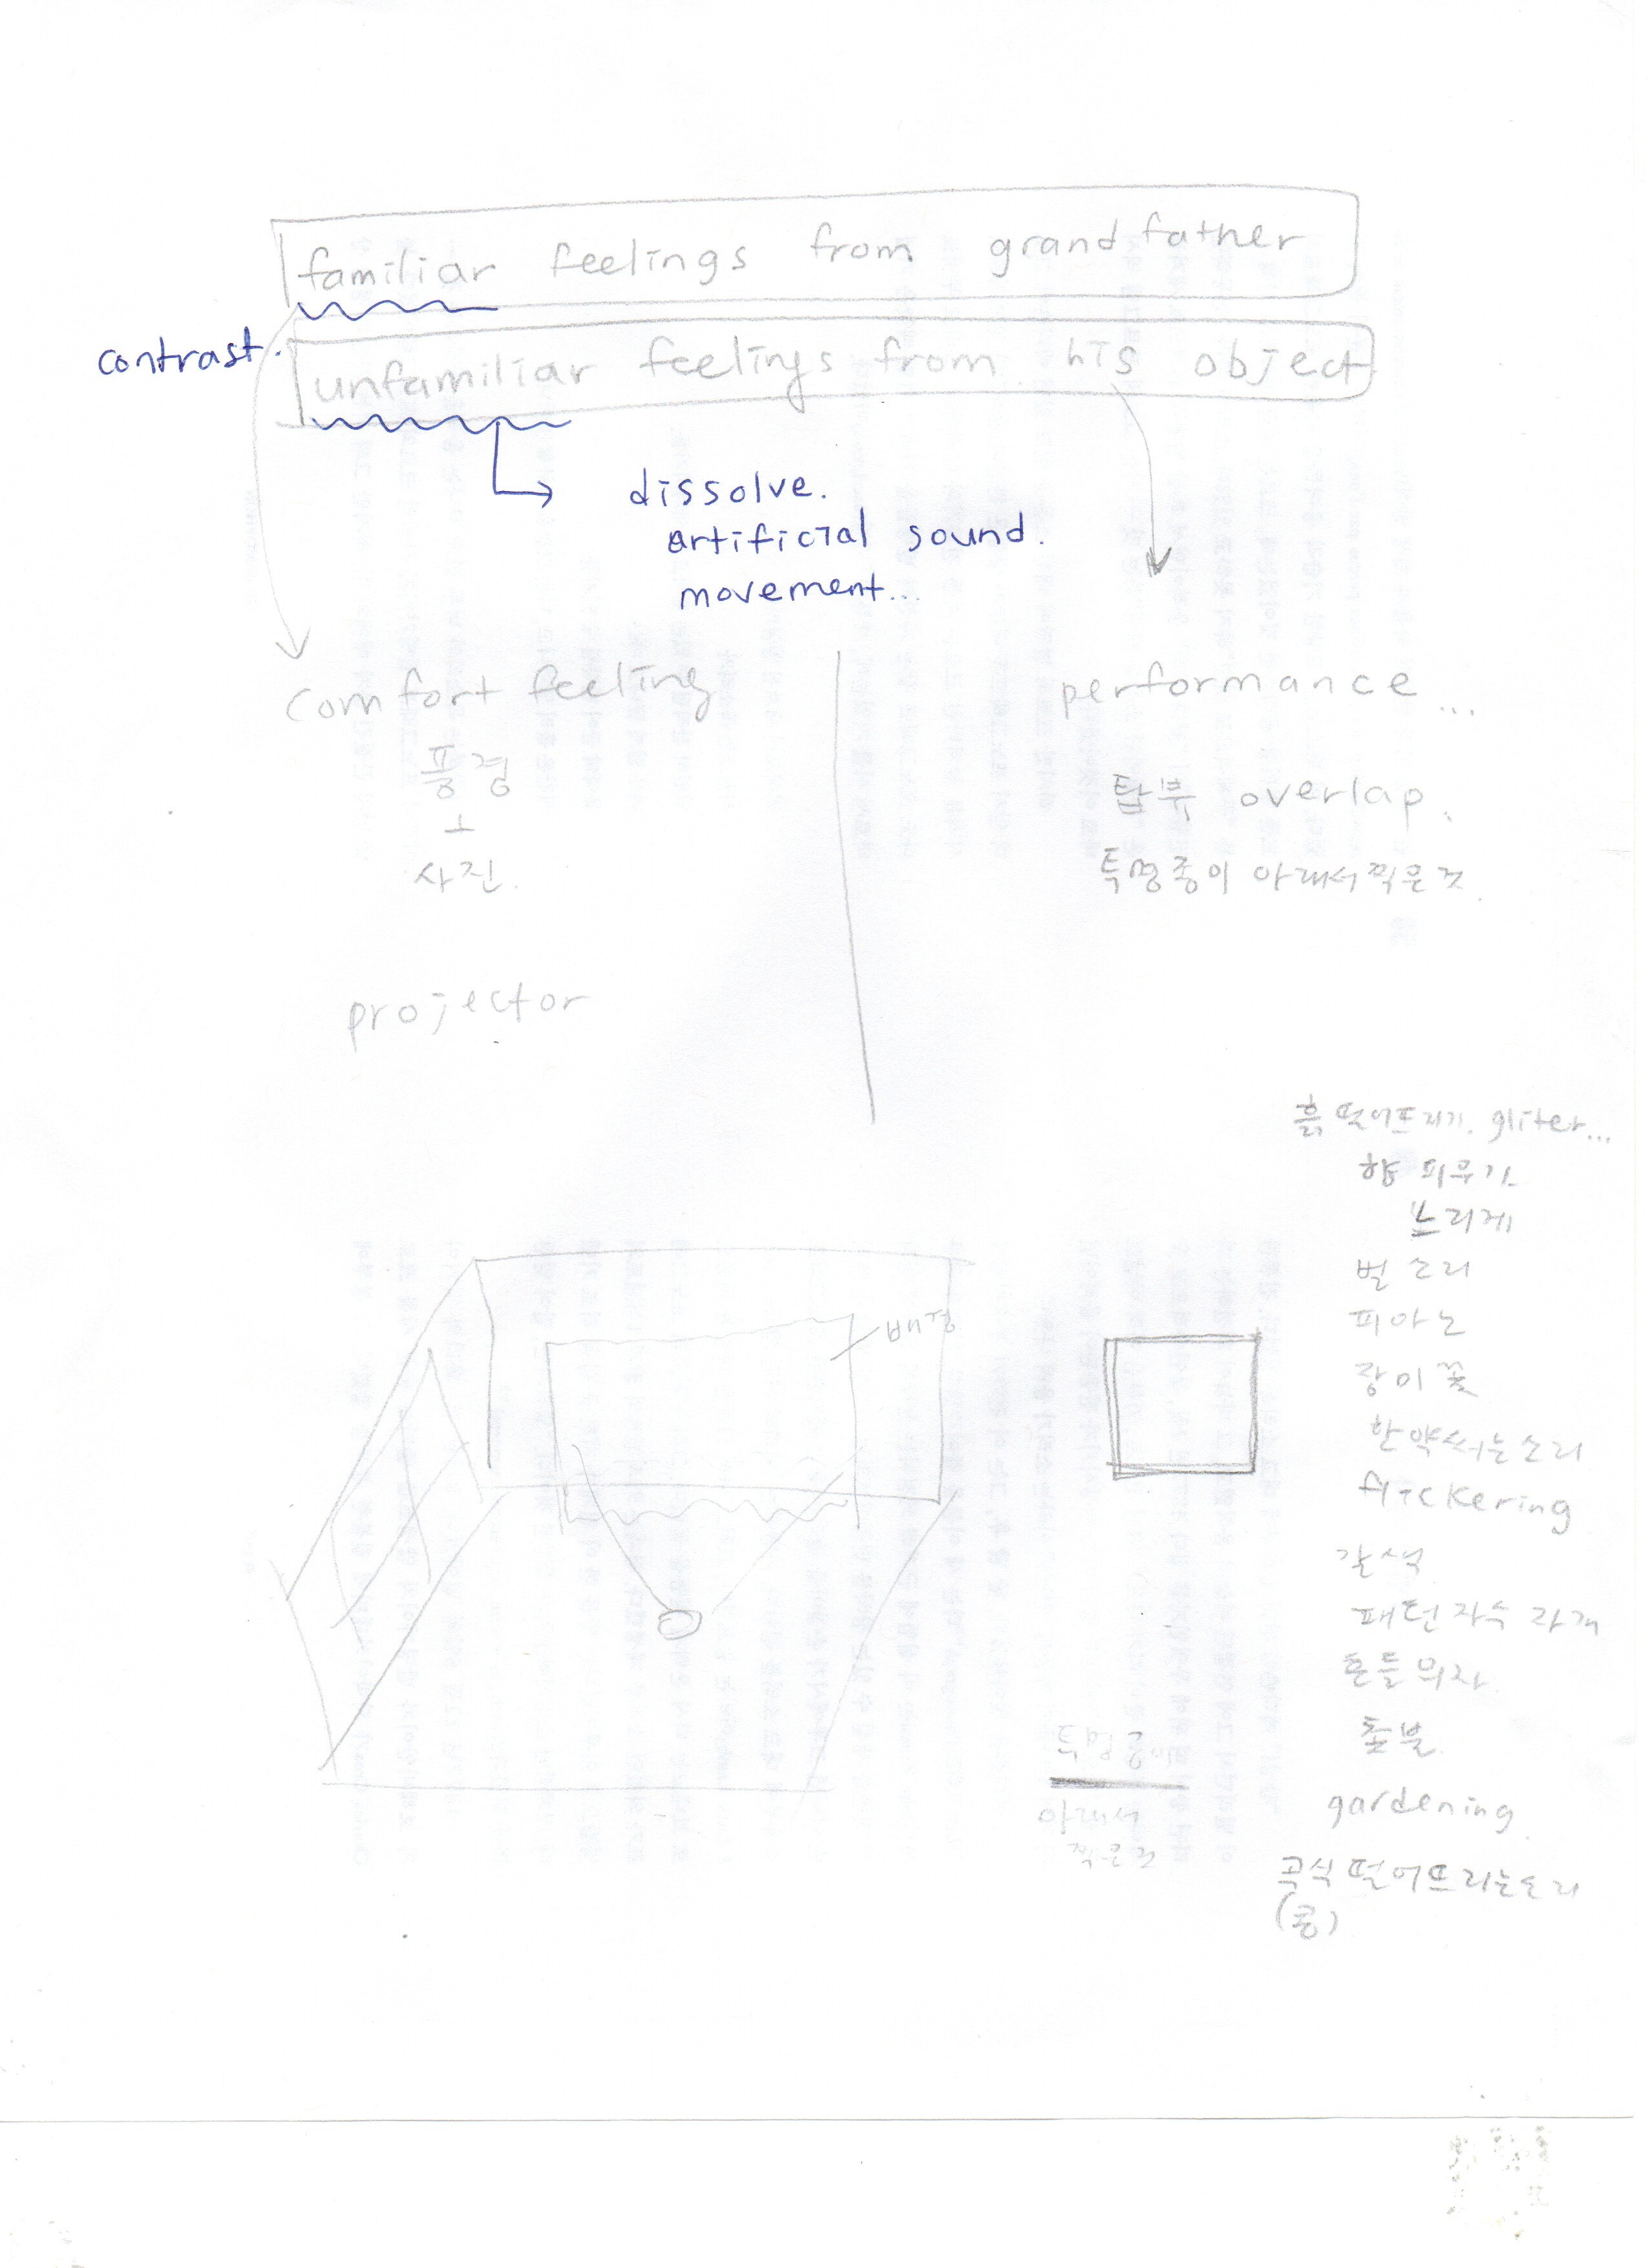 familiar feelings from grandfather
contrast.
unfamiliar feelings from his object
dissolve.
artificial sound.
movement...
comfort feeling
풍경
사진.
performance...
탑뷰 overlap.
투명종이 아래서 찍은 것.
projector
흙 떨어뜨리기. gliter...
향 피우기
느리게
벌 소리
배경
피아노
장미꽃
한약써는소리
flickering
갈색
패턴 자수
흔들의자.
촛불.
gardening.
아래서
찍은것
곡식 떨어뜨리는소리
(콩)